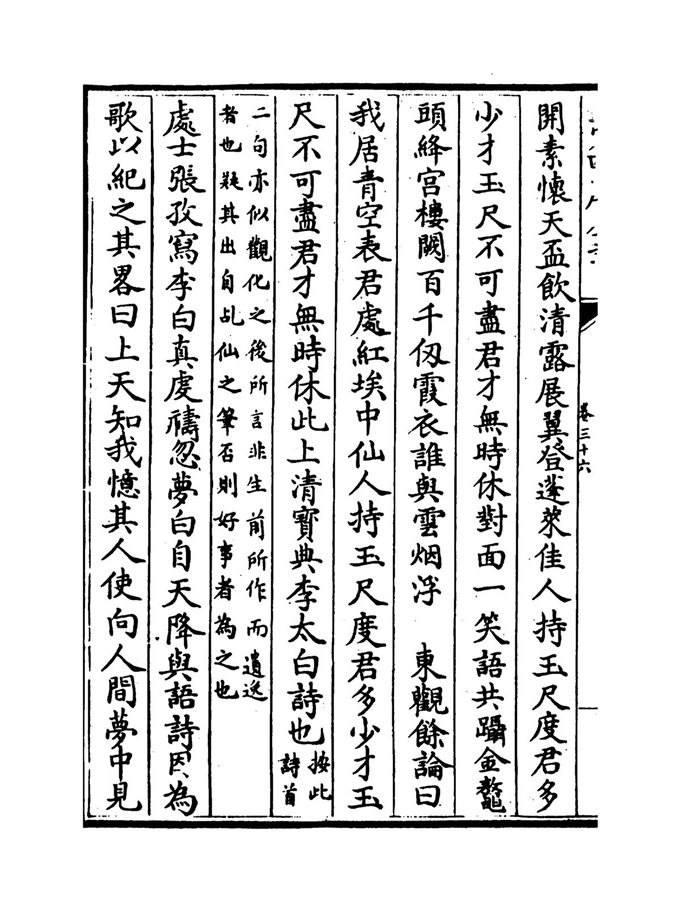 卷三十六
開素懷天盃飲清露展翼登蓬萊佳人持玉尺度君多
少才玉尺不可盡君才無時休對面一笑語共躡金鼇
頭絳宮樓闕百千仭霞衣誰與雲烟浮　東觀餘論曰
我居青空表君處紅埃中仙人持玉尺度君多少才玉
尺不可盡君才無時休此上清寳典李太白詩也按此
詩首
二句亦似觀化之後所言非生前所作而遺逸
者也疑其出自乩仙之筆否則好事者為之也
處士張孜寫李白真虔禱忽夢白自天降與語詩因為
歌以紀之其畧曰上天知我憶其人使向人間夢中見